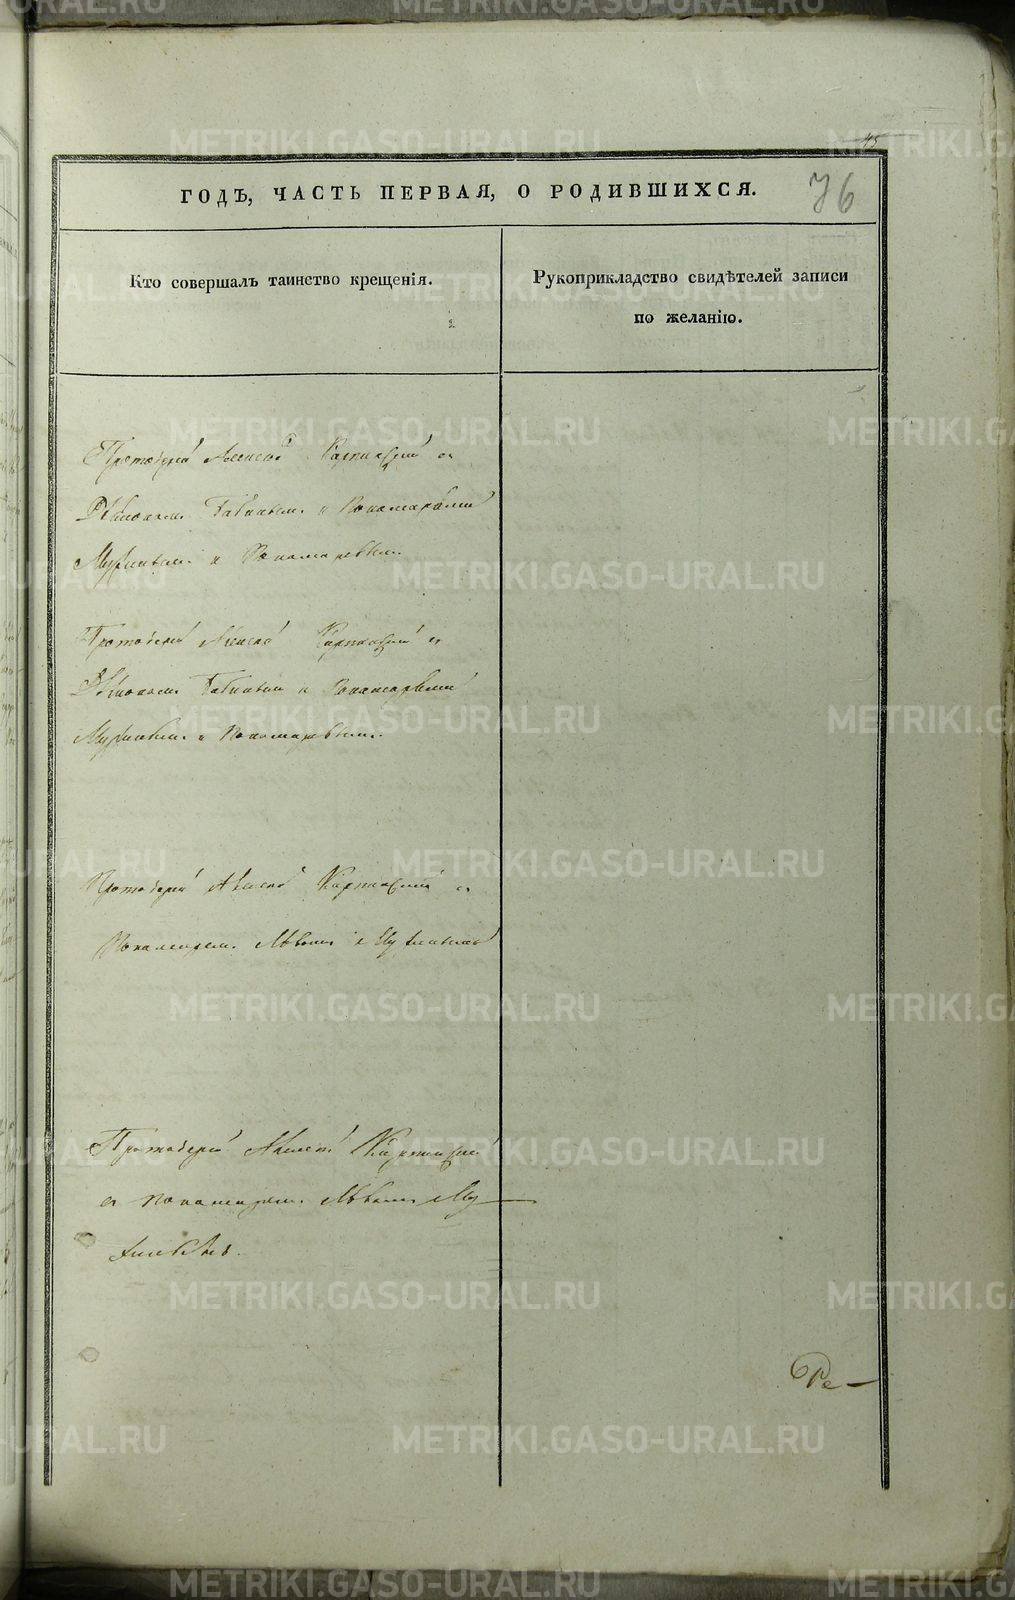 45
76
ГОДЪ, ЧАСТЬ ПЕРВАЯ, О РОДИВШИХСЯ.
Кто совершалъ таинство крещенія.
Рукоприкладство свидѣтелей записи
по желанію.
Протоіерей Алексѣй Карпинскій съ
Діакономъ и Пономарями
и Пономаревымъ.
Протоіерей Алексѣй Карпинскій съ
Діакономъ и Пономарями
и Пономаревымъ.
Протоіерей Алексѣй Карпинскій съ
Пономаремъ
Протоіерей Алексѣй Карпинскій
съ пономаремъ
Ре-
METRIKI.GASO-URAL.RU